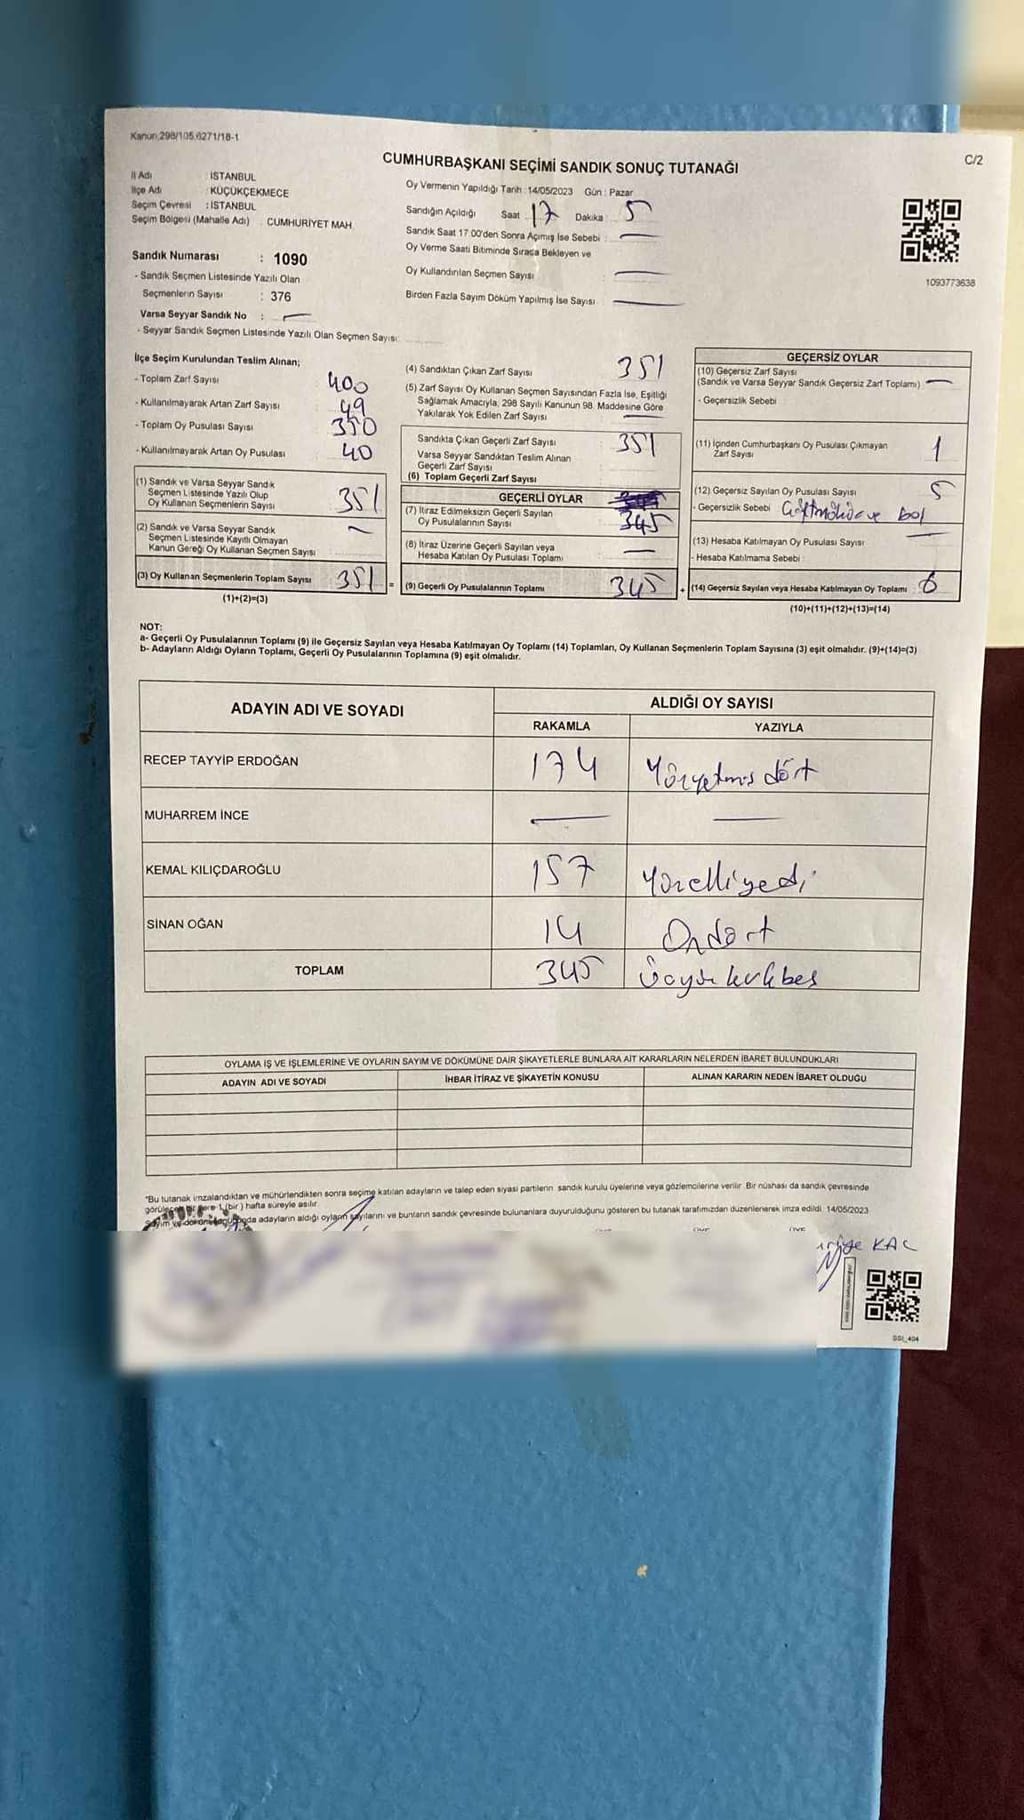 Kanun:298/105,6271/18-1
C/2
CUMHURBAŞKANI SEÇİMİ SANDIK SONUÇ TUTANAĞI
İl Adı : İSTANBUL
İlçe Adı : KÜÇÜKÇEKMECE
Seçim Çevresi : İSTANBUL
Seçim Bölgesi (Mahalle Adı) : CUMHURİYET MAH.
Sandık Numarası : 1090
- Sandık Seçmen Listesinde Yazılı Olan
Seçmenlerin Sayısı : 376
Varsa Seyyar Sandık No : —
- Seyyar Sandık Seçmen Listesinde Yazılı Olan Seçmen Sayısı:
Oy Vermenin Yapıldığı Tarih : 14/05/2023 Gün : Pazar
Sandığın Açıldığı Saat 17 Dakika 5
Sandık Saat 17.00'den Sonra Açımış İse Sebebi : —
Oy Verme Saati Bitiminde Sırada Bekleyen ve
Oy Kullandırılan Seçmen Sayısı : —
Birden Fazla Sayım Döküm Yapılmış İse Sayısı : —
1093773638
İlçe Seçim Kurulundan Teslim Alınan;
- Toplam Zarf Sayısı 400
- Kullanılmayarak Artan Zarf Sayısı 49
- Toplam Oy Pusulası Sayısı
- Kullanılmayarak Artan Oy Pusulası 40
(1) Sandık ve Varsa Seyyar Sandık
Seçmen Listesinde Yazılı Olup
Oy Kullanan Seçmenlerin Sayısı 351
(2) Sandık ve Varsa Seyyar Sandık
Seçmen Listesinde Kayıtlı Olmayan
Kanun Gereği Oy Kullanan Seçmen Sayısı —
(3) Oy Kullanan Seçmenlerin Toplam Sayısı 351 =
(1)+(2)=(3)
(4) Sandıktan Çıkan Zarf Sayısı 351
(5) Zarf Sayısı Oy Kullanan Seçmen Sayısından Fazla İse, Eşitliği
Sağlamak Amacıyla, 298 Sayılı Kanunun 98. Maddesine Göre
Yakılarak Yok Edilen Zarf Sayısı —
Sandıkta Çıkan Geçerli Zarf Sayısı 351
Varsa Seyyar Sandıktan Teslim Alınan
Geçerli Zarf Sayısı
(6) Toplam Geçerli Zarf Sayısı
GEÇERLİ OYLAR
(7) İtiraz Edilmeksizin Geçerli Sayılan
Oy Pusulalarının Sayısı 345
(8) İtiraz Üzerine Geçerli Sayılan veya
Hesaba Katılan Oy Pusulası Toplamı —
(9) Geçerli Oy Pusulalarının Toplamı 345 +
GEÇERSİZ OYLAR
(10) Geçersiz Zarf Sayısı
(Sandık ve Varsa Seyyar Sandık Geçersiz Zarf Toplamı) —
- Geçersizlik Sebebi :
(11) İçinden Cumhurbaşkanı Oy Pusulası Çıkmayan
Zarf Sayısı 1
(12) Geçersiz Sayılan Oy Pusulası Sayısı 5
- Geçersizlik Sebebi
(13) Hesaba Katılmayan Oy Pusulası Sayısı —
- Hesaba Katılmama Sebebi :
(14) Geçersiz Sayılan veya Hesaba Katılmayan Oy Toplamı 6
(10)+(11)+(12)+(13)=(14)
NOT:
a- Geçerli Oy Pusulalarının Toplamı (9) ile Geçersiz Sayılan veya Hesaba Katılmayan Oy Toplamı (14) Toplamları, Oy Kullanan Seçmenlerin Toplam Sayısına (3) eşit olmalıdır. (9)+(14)=(3)
b- Adayların Aldığı Oyların Toplamı, Geçerli Oy Pusulalarının Toplamına (9) eşit olmalıdır.
ADAYIN ADI VE SOYADI ALDIĞI OY SAYISI
RAKAMLA YAZIYLA
RECEP TAYYİP ERDOĞAN 174 Yüzyetmiş dört
MUHARREM İNCE — —
KEMAL KILIÇDAROĞLU 157 Yüzelliyedi
SİNAN OĞAN 14 Ondört
TOPLAM 345 Üçyüz kırkbeş
OYLAMA İŞ VE İŞLEMLERİNE VE OYLARIN SAYIM VE DÖKÜMÜNE DAİR ŞİKAYETLERLE BUNLARA AİT KARARLARIN NELERDEN İBARET BULUNDUKLARI
ADAYIN ADI VE SOYADI İHBAR İTİRAZ VE ŞİKAYETİN KONUSU ALINAN KARARIN NEDEN İBARET OLDUĞU
"Bu tutanak imzalandıktan ve mühürlendikten sonra seçime katılan adayların ve talep eden siyasi partilerin sandık kurulu üyelerine veya gözlemcilerine verilir. Bir nüshası da sandık çevresinde
1 (bir) hafta süreyle asılır.
adayların aldığı oyların sayılarını ve bunların sandık çevresinde bulunanlara duyurulduğunu gösteren bu tutanak tarafımızdan düzenlenerek imza edildi. 14/05/2023
KAÇ
SSI_404